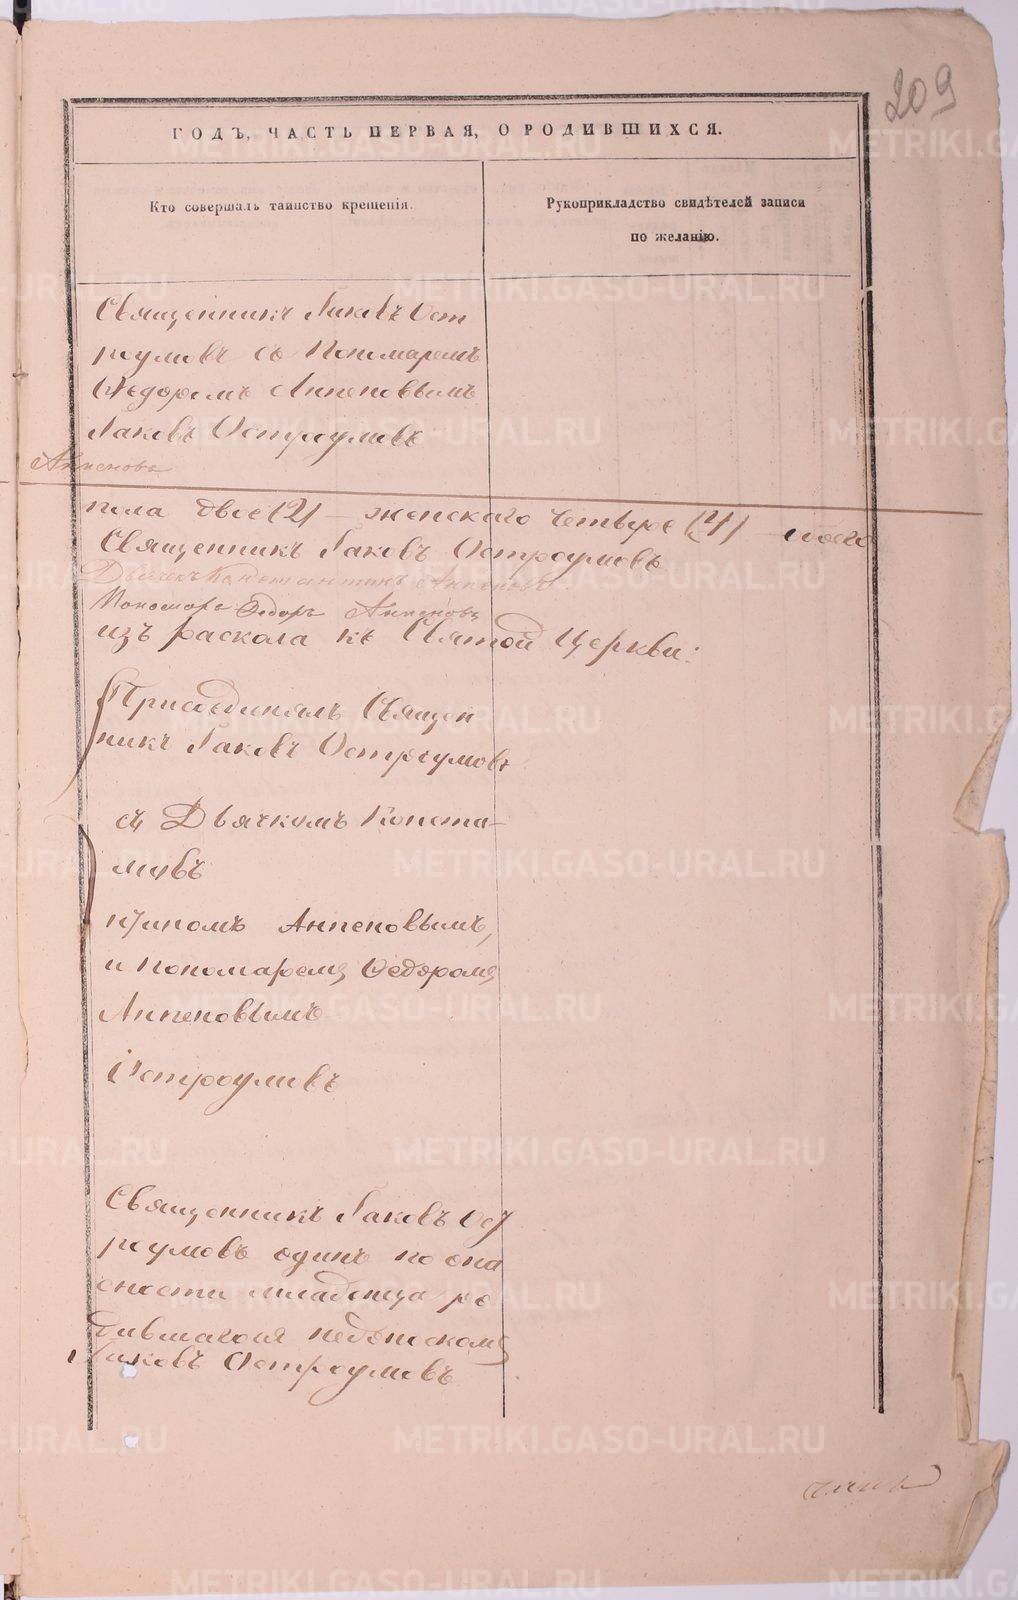 209
ГОДЪ, ЧАСТЬ ПЕРВАЯ, О РОДИВШИХСЯ.
Кто совершалъ таинство крещенія.
Рукоприкладство свидѣтелей записи
по желанію.
Священникъ Іаковъ Ост
роумовъ съ Пономаремъ
Ѳедоромъ Анпеновымъ
Іаковъ Остроумовъ
Анпеновъ
пола двое (2) – женскаго четверо (4) – всего
Священникъ Іаковъ Остроумовъ
Дьячекъ Константинъ Анпеновъ
Пономарь Ѳедоръ Анпеновъ
изъ раскола къ Святой Церкви:
Присоединялъ Священ
никъ Іаковъ Остроумовъ
съ Дьячкомъ Конста-
мовъ
нтиномъ Анпеновымъ,
и Пономаремъ Ѳедоромъ
Анпеновымъ
Остроумовъ
Священникъ Іаковъ Ост
роумовъ одинъ по опа
сности младенца ро
дившагося
Іаковъ Остроумовъ
METRIKI.GASO-URAL.RU